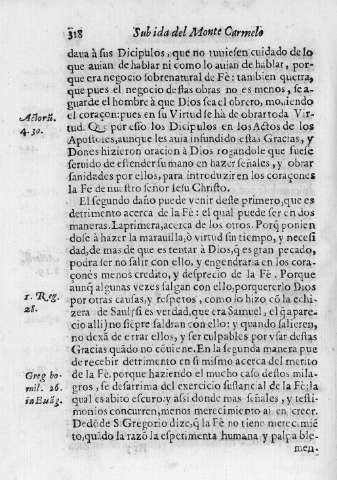 318 Subida del Monte Carmelo
daua à sus Dicipulos, que no tuuiesen cuidado de lo
que auian de hablar ni como lo auian de hablar, por-
que era negocio sobrenatural de Fè: tambien querra,
que pues el negocio destas obras no es menos, se a-
guarde el hombre à que Dios sea el obrero, mouiendo
el coraçon: pues en su Virtud se hà de obrar toda Vir-
tud. Que por esso los Dicipulos en los Actos de los
Apostoles, aunque les auia infundido estas Gracias, y
Dones hizieron oracion à Dios rogandole que fuese
seruido de estender su mano en hazer señales, y obrar
sanidades por ellos, para introduzir en los coraçones
la Fe de nuestro señor Iesu Christo.
El segundo daño puede venir deste primero, que es
detrimento acerca de la Fè: el qual puede ser en dos
maneras. La primera, acerca de los otros. Porq̃ ponien
dose à hazer la marauilla, ò virtud sin tiempo, y necesi
dad, de mas de que es tentar à Dios, q̃ es gran pecado,
podra ser no salir con ello, y engendraria en los cora-
çones menos credito, y desprecio de la Fè. Porque
aunq̃ algunas vezes salgan con ello, por quererlo Dios
por otras causas, y respetos, como lo hizo cõ la echi-
zera de Saul (si es verdad, que era Samuel, el q̃ apare-
cio alli) no siẽpre saldran con ello: y quando salieren,
no dexã de errar ellos, y ser culpables por vsar destas
Gracias quãdo no cõuiene. En la segunda manera pue
de recebir detrimento en si mismo acerca del merito
de la Fè. porque haziendo el mucho caso destos mila-
gros, se desarrima del exercicio sustancial de la Fè; la
qual es abito escuro: y assi donde mas señales, y testi-
monios concurren, menos merecimiento ai en creer.
De dõde S. Gregorio dize, q̃ la Fè no tiene merecimiẽ
to, quãdo la razõ la esperimenta humana y palpable-
men-
Actorũ.
4. 30.
1. Reg.
28.
Greg ho-
mil. 26.
in Euãg.